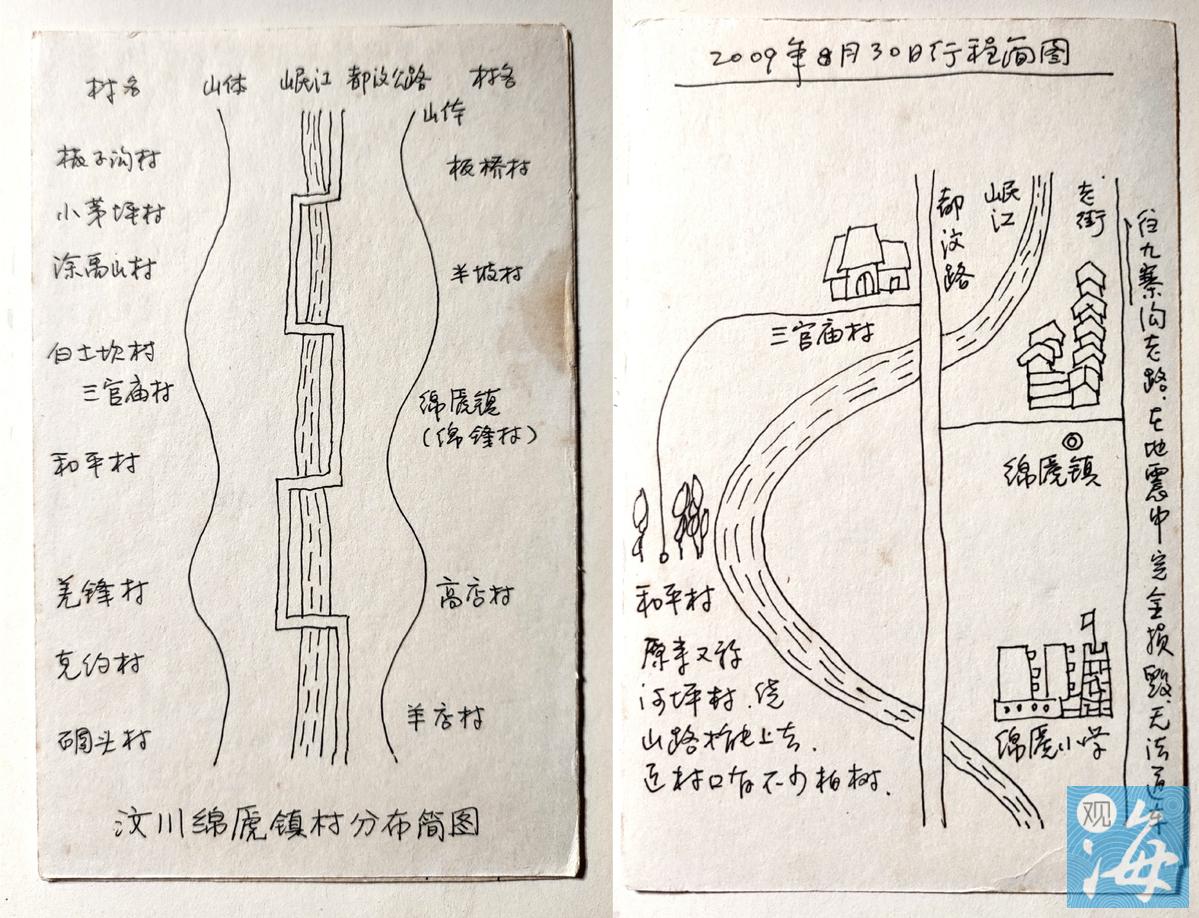 村名 山体 岷江 都汶公路 村名
山体
板子沟村
小茅坪村
涂禹山村
白土坎村
三官庙村
和平村
羌锋村
克约村
碉头村
板桥村
羊坡村
绵虒镇
(绵锋村)
高店村
羊店村
汶川绵虒镇村分布简图
2009年8月30日行程简图
都汶路
岷江
老街
往九寨沟老路.在地震中完全损毁,无法通车
三官庙村
绵虒镇
和平村
原来又称
河坪村.绕
山路 上去.
近村口有不少柏树.
绵虒小学
观海